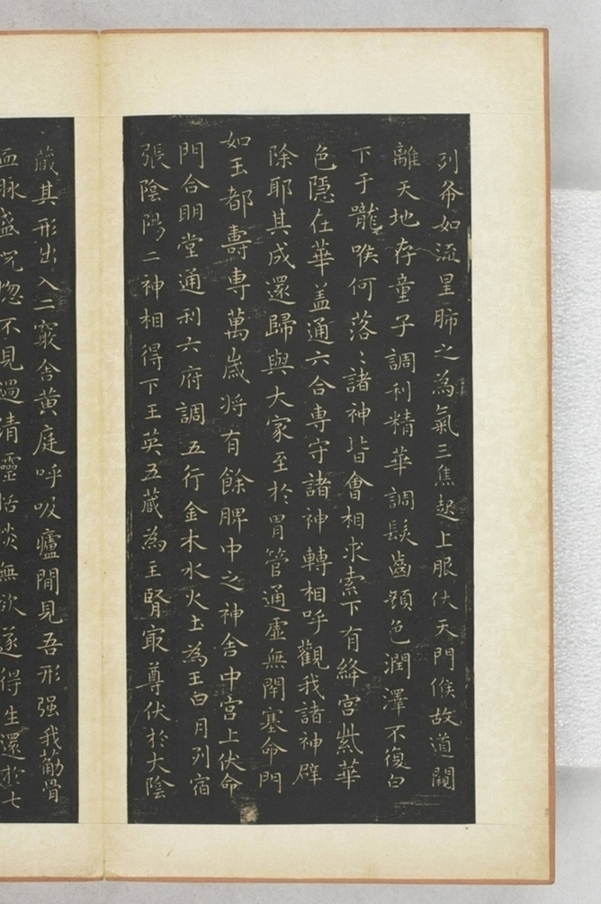 列布如流星肺之為氣三焦起上服伏天門候故道闚
離天地存童子調利精華調髮齒顏色潤澤不復白
下于嚨喉何落〻諸神皆會相求索下有絳宮紫華
色隱在華盖通六合專守諸神轉相呼觀我諸神辟
除耶其成還歸與大家至於胃管通虛無閉塞命門
如玉都壽專萬歲将有餘脾中之神舍中宮上伏命
門合明堂通利六府調五行金木水火土為王日月列宿
張陰陽二神相得下玉英五藏為主腎最尊伏於大陰
藏其形出入二竅舍黃庭呼吸廬間見吾形强我筋骨
血脉盛恍惚不見過清靈恬惔無欲遂得生還於七